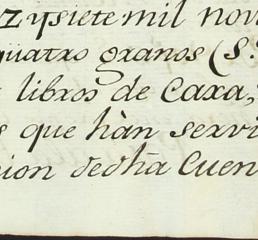 z ysiete mil nov
qüatro granos (S.
libros de Caxa,
s que hàn servi
ion dedha Cuen